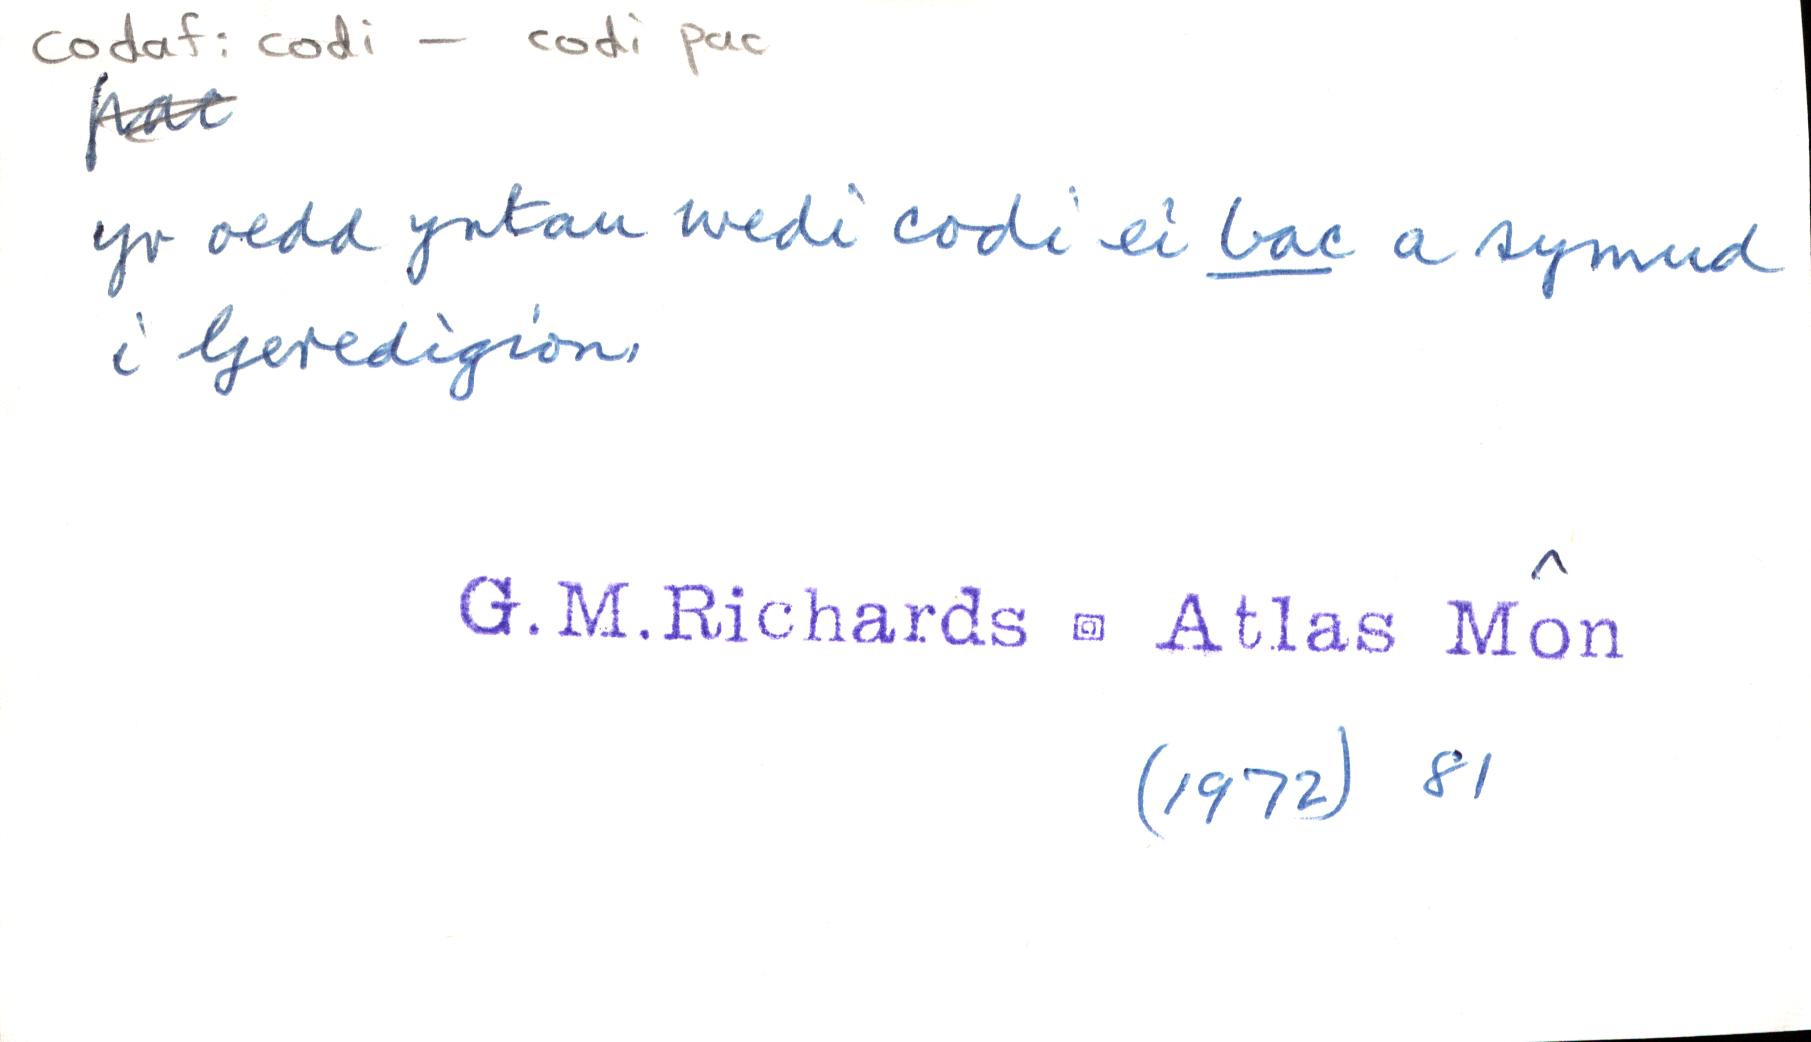 codaf: codi — codi pac
pac
yr oedd yntau wedi codi ei bac a symud
i Geredigion.
G.M.Richards Atlas Môn
(1972) 81